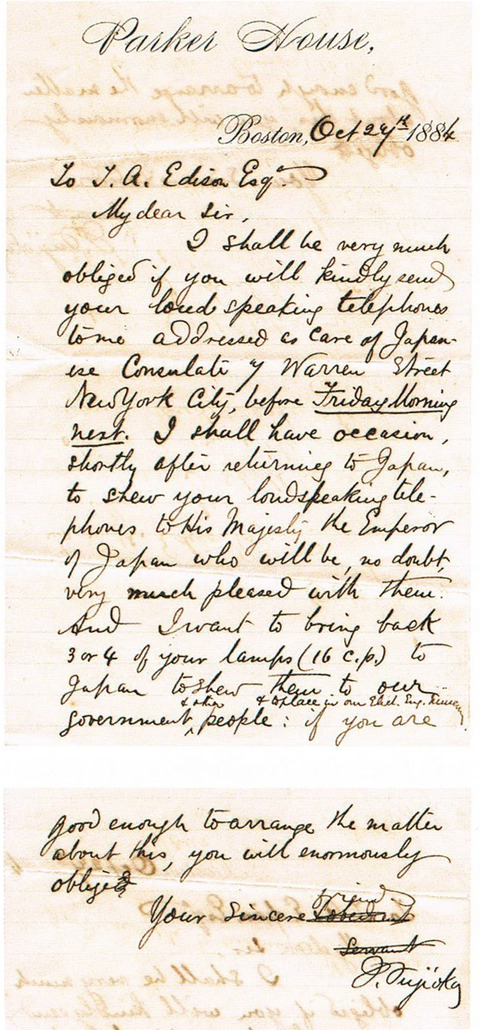 Parker House,
Boston, Oct 27th 1884
To T. A. Edison Esqre
My dear Sir,
I shall be very much
obliged if you will kindly send
your loud speaking telephones
to me addressed as care of Japan-
ese Consulate 7 Warren Street
New York City, before Friday Morning
next. I shall have occasion,
shortly after returning to Japan,
to shew your loudspeaking tele-
phones to His Majesty the Emperor
of Japan who will be, no doubt,
very much pleased with them.
And I want to bring back
3 or 4 of your lamps (16 c.p.) to
Japan to shew them to our
& other & to place in our Elect. Eng.
government, people: if you are
good enough to arrange the matter
about this, you will enormously
obliged
friend
Your Sincere obedient
Servant
Fujioka